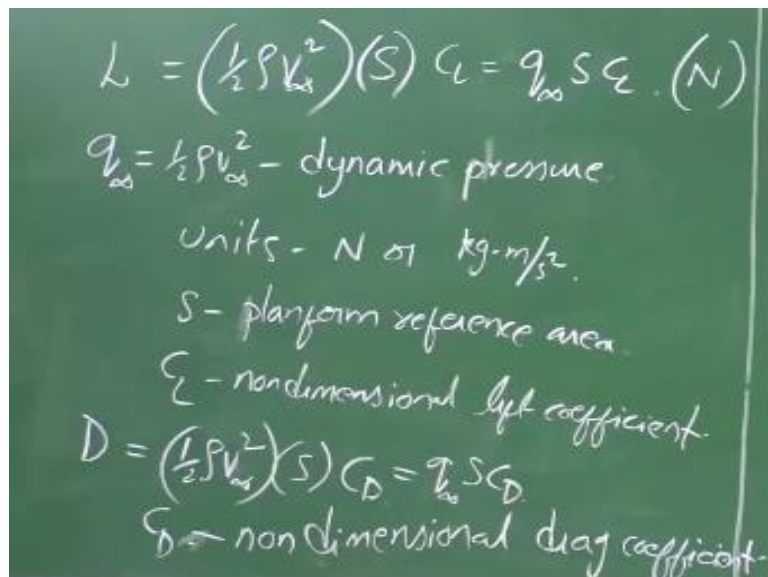 L = (½ ρV∞²)(S) C_L = q∞ S C_L . (N)
q∞ = ½ ρV∞² - dynamic pressure
units - N or kg-m/s².
S - planform reference area
C_L - nondimensional lift coefficient.
D = (½ ρV∞²)(S) C_D = q∞ S C_D
C_D - nondimensional drag coefficient.